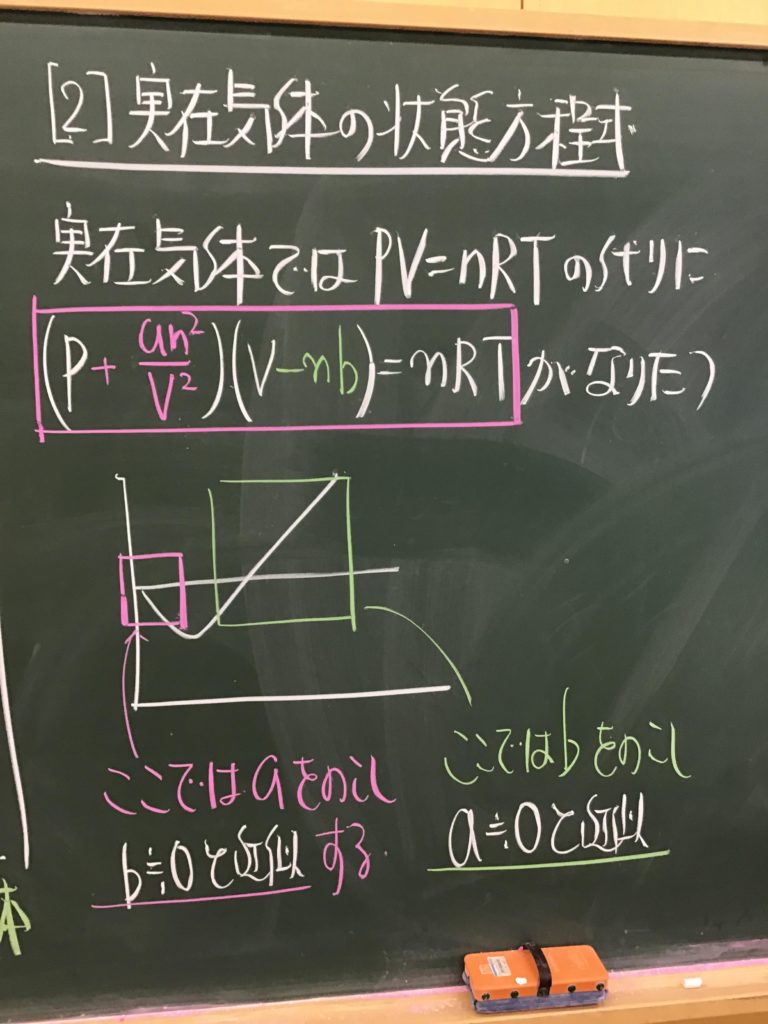 [2]実在気体の状態方程式
実在気体では PV=nRT の代りに
(P + an²/V²)(V-nb)=nRT がなりたつ
ここではaをのこし
b≒0と近似する
ここではbをのこし
a≒0と近似
体